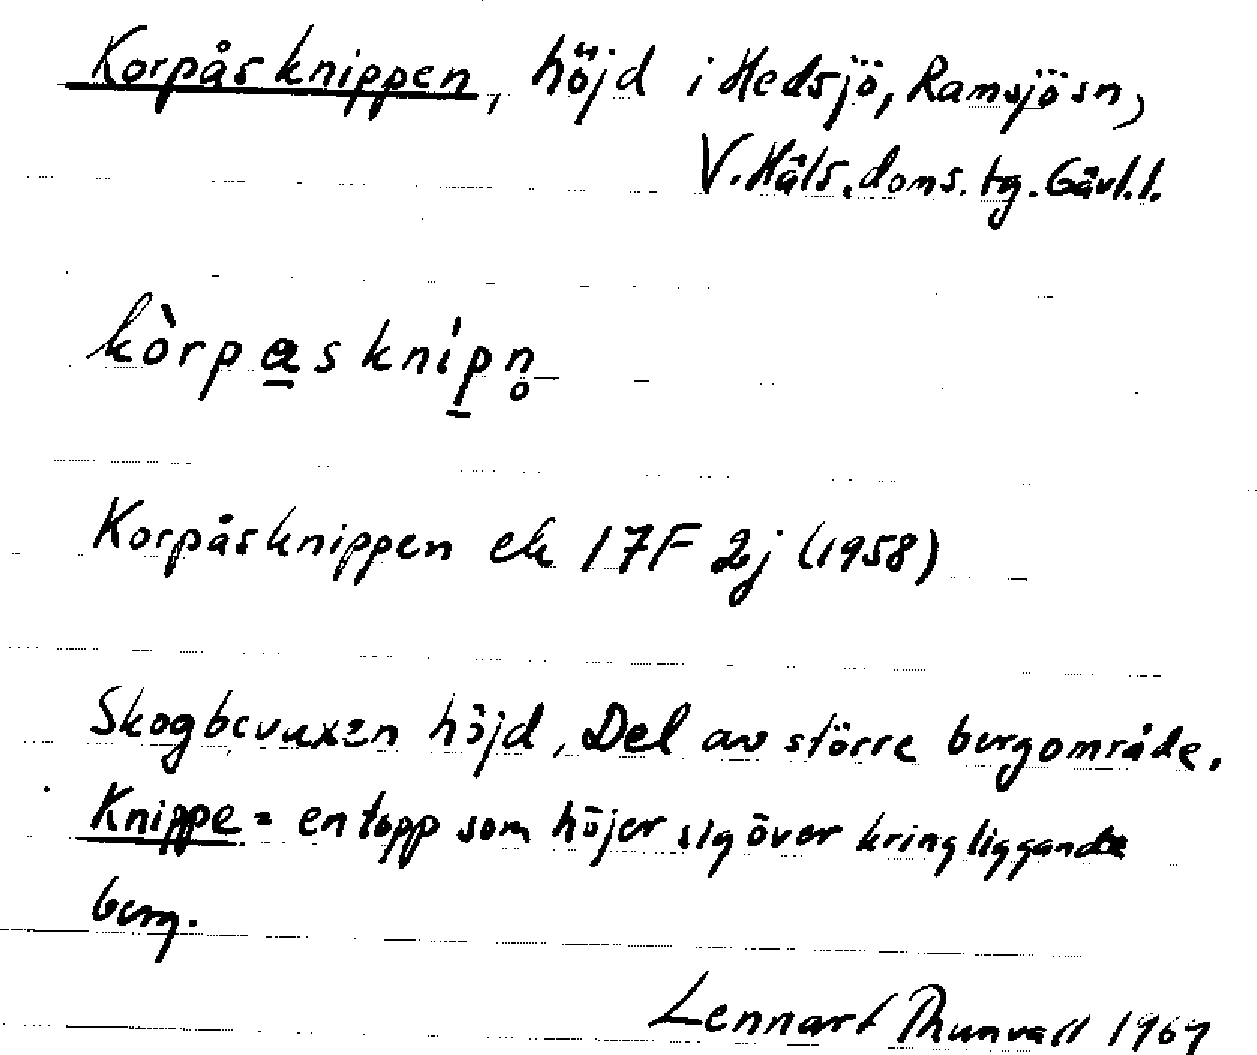 Korpåsknippen, höjd i Hedsjö, Ramsjö sn,
V. Häls. doms. tg. Gävl. l.
kòrpa̲s kníp̲n̥
Korpåsknippen ek 17F 2j (1958)
Skogbevuxen höjd, Del av större bergområde.
Knippe = en topp som höjer sig över kringliggande
berg.
Lennart Thunvall 1967